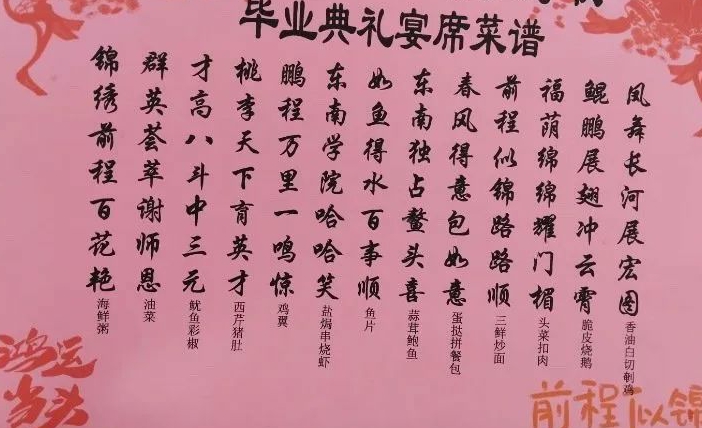 毕业典礼宴席菜谱
凤舞长河展宏图
香油白切鸡
鲲鹏展翅冲云霄
脆皮烧鹅
福荫绵绵耀门楣
头菜扣肉
前程似锦路路顺
三鲜炒面
春风得意包如意
蛋挞拼餐包
东南独占鳌头喜
蒜茸鲍鱼
如鱼得水百事顺
鱼片
东南学院哈哈笑
盐焗串烧虾
鹏程万里一鸣惊
鸡翼
桃李天下育英才
西芹猪肚
才高八斗中三元
鱿鱼彩椒
群英荟萃谢师恩
油菜
锦绣前程百花艳
海鲜粥
鸿运
当头
前程似锦